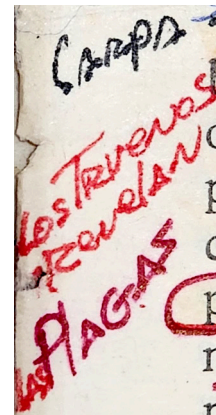 CARPA
LOS TRUENOS
REVELAN
LAS PLAGAS